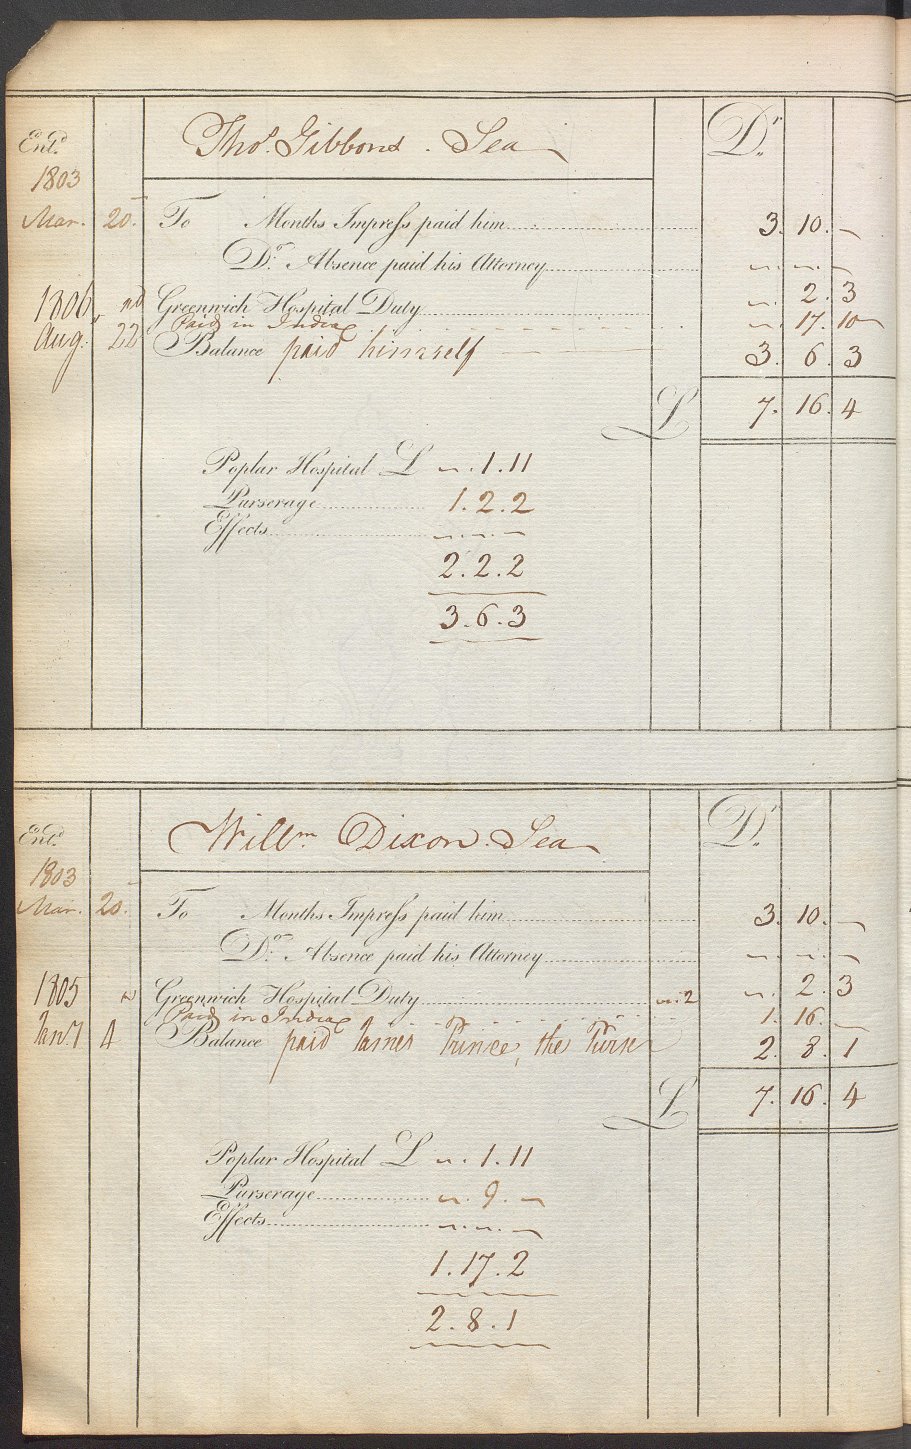 Thos. Gibbons. Sea Dr.
Entd.
1803
Mar. 20. To Months Impress paid him 3. 10. –
Do. Absence paid his Attorney –. –. –
1806 Greenwich Hospital Duty –. 2. 3
Paid in India –. 17. 10
Aug. 22 Balance paid himself 3. 6. 3
£ 7. 16. 4
Poplar Hospital £ –. 1. 11
Purserage 1. 2. 2
Effects –. –. –
2. 2. 2
3. 6. 3
Willm. Dixon. Sea Dr.
Entd.
1803
Mar. 20. To Months Impress paid him 3. 10. –
Do. Absence paid his Attorney –. –. –
1805 Greenwich Hospital Duty –. 2 –. 2. 3
Paid in India 1. 16. –
Jany 4 Balance paid James Prince, the Purser 2. 8. 1
£ 7. 16. 4
Poplar Hospital £ –. 1. 11
Purserage –. 9. –
Effects –. –. –
1. 17. 2
2. 8. 1